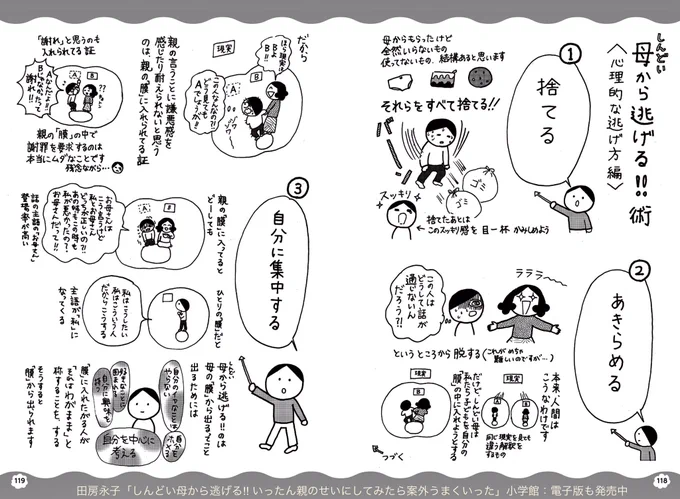 しんどい
母から逃げる!!術
〈心理的な逃げ方編〉
①
捨てる
母からもらったけど
全然いらないもの
使ってないもの、結構あると思います
それらをすべて捨てる!!
バーン
ゴミ
ゴミ
スッキリ
捨てたあとは
このスッキリ感を目一杯かみしめよう
②
あきらめる
ラララ〜
この人は
どうして話が
通じないん
だろう?!
というところから脱する(これがめちゃ
難しいのですが…)
本来、人間は
こうなわけです
現実
A
B
同じ現実を見ても
違う解釈を
するもの
だけど、しんどい母は
私たち子どもを自分の
「膜」の中に入れようとする
現実
B
つづく
118
だから
ほら現実は
Bよ
B!!
現実
A
B
この人なんなの?!
どう見ても
Aでしょうが!!
ゾワ
ゾワ
親の言うことに嫌悪感を
感じたり耐えられないと思う
のは、親の「膜」に入れられてる証
「謝れ」と思うのも
入れられてる証
A
B
Aなんだよ!!
Bじゃなかったって
謝れ!!
??
親の「膜」の中で
謝罪を要求するのは
本当にムダなことです
残念ながら…
③
自分に集中する
親の「膜」に入ってると
どーしても
A
B
お母さんは
こう言うけど
私とお母さん
どっちが正しいの?!
あの時もこの時も
私が悪かったの?
お母さんだって!!
話の主語の「お母さん」
登場率が高い
ひとりの「膜」だと
私はこうしたい
私はこういう人
だからこうする
主語が「私」に
なってくる
しんどい
母から逃げる!!のは
母の「膜」から出るってこと
出るためには
自分のイヤなことは
やらない
自分を
ホメる
好きなことに
囲まれる
自分に興味を
持つ
自分を中心に
考える
「膜」に入れたがる人が
「それはわがまま」と
称することを、する
もうすると
「膜」から出られます
119
田房永子「しんどい母から逃げる!! いったん親のせいにしてみたら案外うまくいった」小学館:電子版も発売中